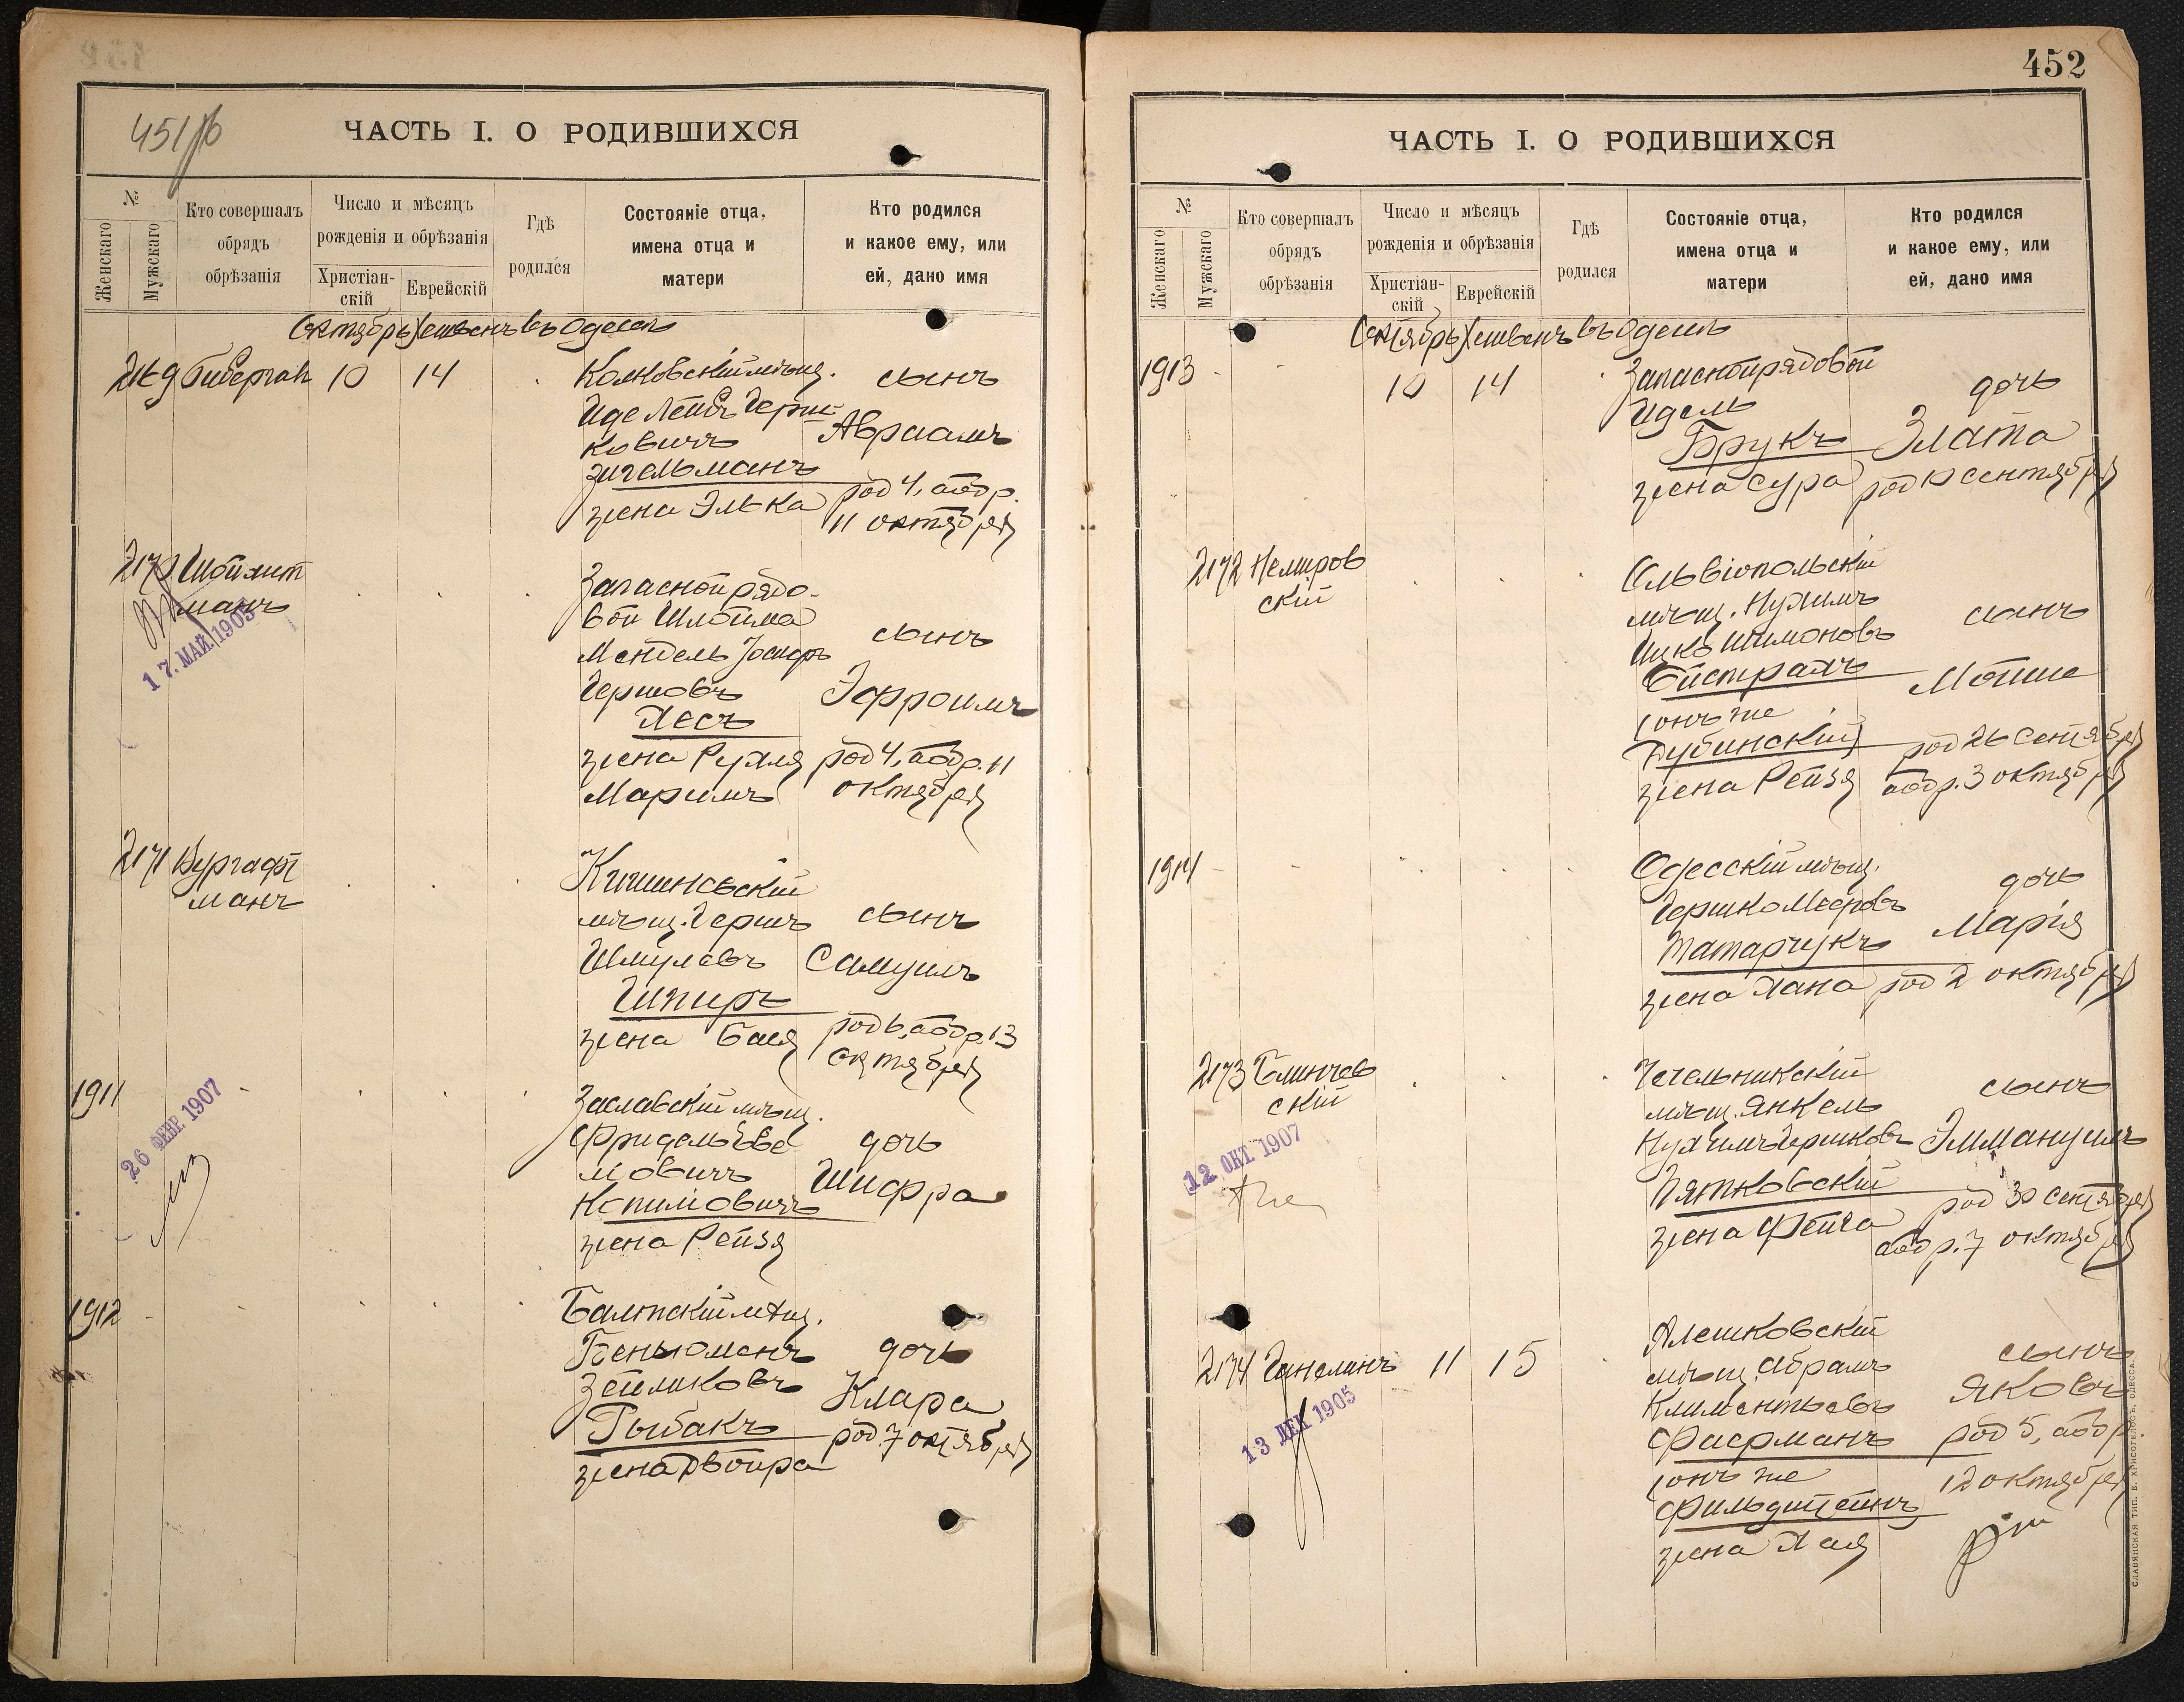 451 об
ЧАСТЬ I. О РОДИВШИХСЯ
№
Женскаго
Мужскаго
Кто совершалъ
обрядъ
обрѣзанія
Число и мѣсяцъ
рожденія и обрѣзанія
Христіан-
скій
Еврейскій
Гдѣ
родился
Состояніе отца,
имена отца и
матери
Кто родился
и какое ему, или
ей, дано имя
Октябрь Хешванъ въ Одессѣ
2169 10 14
мѣщ.
Зигельманъ
жена Элька
сынъ
Авраамъ
род 4, обр.
11 октября
2170 Шойхит
манъ
17. МАЙ 1905
Запасной рядо-
вой Шлойма
Мендель Іосифъ
Гершовъ
Хесъ
жена Рухля
Маримъ
сынъ
Эфроимъ
род 4, обр. 11
октября
2171 Вургафт
манъ
Кишиневскій
мѣщ. Гершъ
Шмулевъ
Шпиръ
жена Бася
сынъ
Самуилъ
род 6, обр. 13
октября
1911
26 ФЕВР. 1907
Заславскій мѣщ.
мовичъ
жена Рейзя
дочь
Шифра
1912
Балтскій мѣщ.
Беньюменъ
Зейликовъ
Рыбакъ
жена Двойра
дочь
Клара
род. 7 октября
452
ЧАСТЬ I. О РОДИВШИХСЯ
№
Женскаго
Мужскаго
Кто совершалъ
обрядъ
обрѣзанія
Число и мѣсяцъ
рожденія и обрѣзанія
Христіан-
скій
Еврейскій
Гдѣ
родился
Состояніе отца,
имена отца и
матери
Кто родился
и какое ему, или
ей, дано имя
Октябрь Хешванъ въ Одессѣ
1913 10 14
Запасной рядовой
Идель
Брукъ
жена Сура
дочь
Злата
род 10 сентября
2172 Немиров
скій
Ольвіопольскій
мѣщ. Нухимъ
Ицко Шимоновъ
Бистрахъ
онъ же
Дубинскій
жена Рейзя
сынъ
Мойше
род 26 сентября
обр. 3 октября
1914
Одесскій мѣщ.
Гершко Мееровъ
Татарчукъ
жена Хана
дочь
Марія
род 2 октября
2173 Блинчев
скій
12 ОКТ. 1907
Чечельникскій
мѣщ. Янкель
Нухимъ Гершковъ
Пятковскій
жена Фейга
сынъ
Эммануилъ
род 30 сентября
обр. 7 октября
2174 Ганелинъ 11 15
13 ДЕК 1905
Алешковскій
мѣщ. Абрамъ
Климентьевъ
Фаерманъ
онъ же
жена Хая
сынъ
Яковъ
род 5, обр.
12 октября
СЛАВЯНСКАЯ ТИП. Е. ХРИСОГЕЛОСЪ, ОДЕССА.